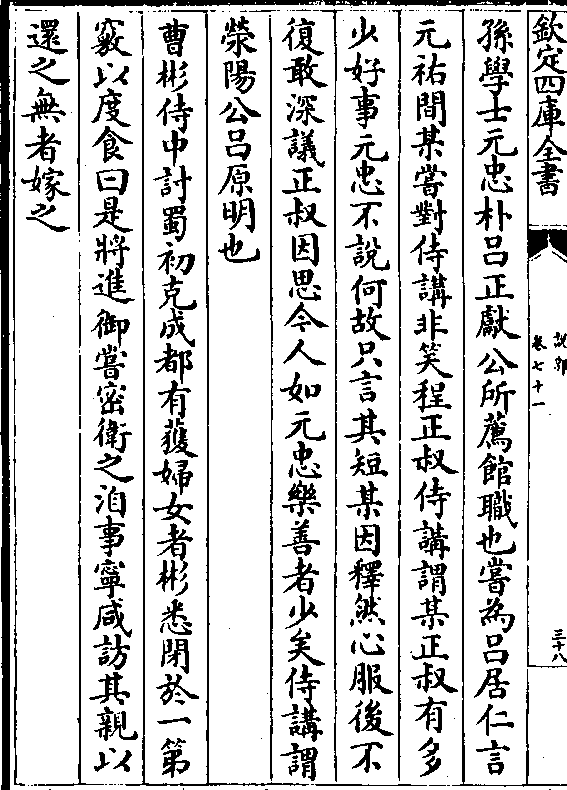 欽定四庫全書
說郛
卷七十一
三十八
孫學士元忠朴呂正獻公所薦館職也嘗為呂居仁言
元祐間某嘗對侍講非笑程正叔侍講謂某正叔有多
少好事元忠不說何故只言其短某因釋然心服後不
復敢深議正叔因思今人如元忠樂善者少矣侍講謂
滎陽公呂原明也
曹彬侍中討蜀初克成都有獲婦女者彬悉閉於一第
竅以度食曰是將進御嘗密衛之洎事寧咸訪其親以
還之無者嫁之